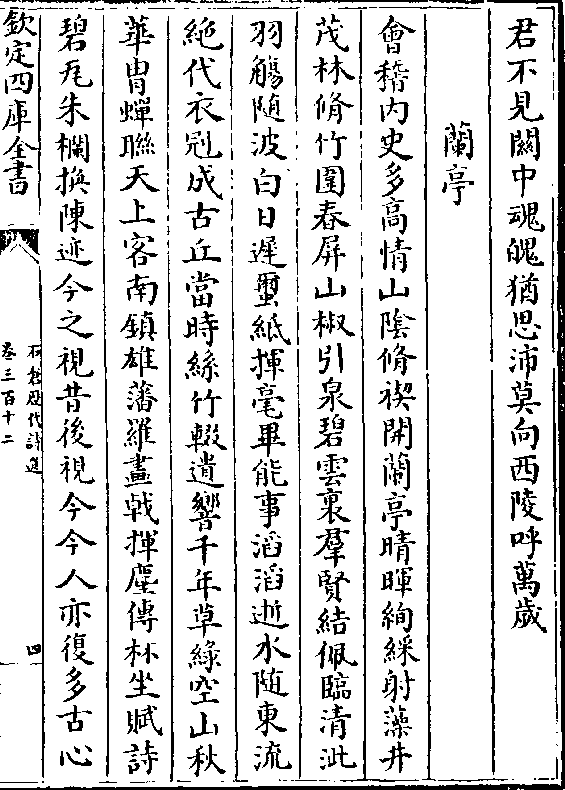 君不見闕中魂魄猶思沛莫向西陵呼萬歲
蘭亭
會稽内史多高情山陰脩禊開蘭亭晴暉絢綵射藻井
茂林脩竹圍春屏山椒引泉碧雲裏羣賢結佩臨清泚
羽觴随波白日遲蠒紙揮毫畢能事滔滔逝水随東流
絶代衣冠成古丘當時絲竹輟遺響千年草緑空山秋
華胄蟬聯天上客南鎮雄藩羅畫戟揮麈傳杯坐賦詩
碧瓦朱欄換陳迹今之視昔後視今今人亦復多古心
欽定四庫全書
石倉歴代詩選
卷三百十二
四